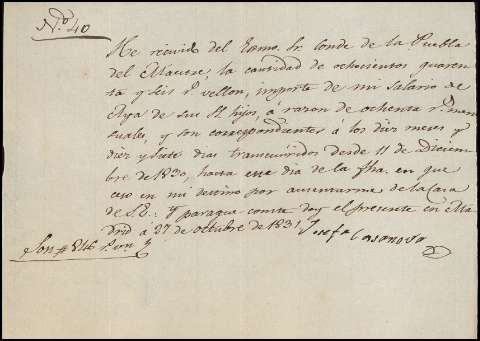 N.º 40
He recivido del Exmo. Sr. Conde de la Puebla
del Maestre, la cantidad de ochocientos quaren
ta y seis r.s vellon, importe de mi salario de
Aya de sus S.S. hijos, á razon de ochenta r.s men
suales, y son correspondientes á los diez meses y
diez y siete dias transcurridos desde 11 de Diciem
bre de 1830, hasta este dia de la fha. en que
ceso en mi destino por ausentarme de la Casa
de S.E.: y para que conste doy el presente en Ma
drid á 27 de octubre de 1831
Josefa Casanova
Son # 846 r.s vn.